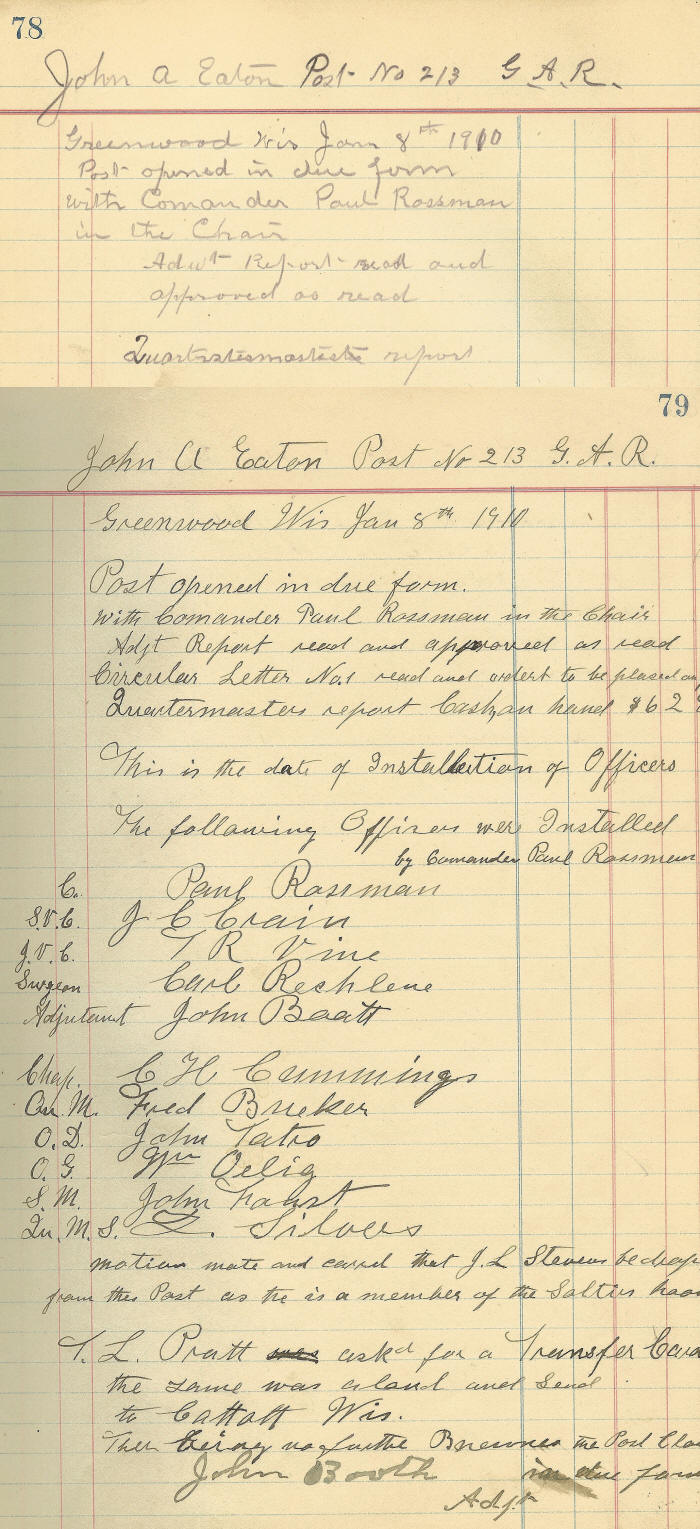 78
John A Eaton Post No 213 G. A. R.
Greenwood Wis Jan 8th 1910
Post opened in due form
with Comander Paul Rossman
in the Chair
Report read and
approved as read
report
79
John A Eaton Post No 213 G. A. R.
Greenwood Wis Jan 8th 1910
Post opened in due form.
With Comander Paul Rossman in the Chair
Adjt Report read and approved as read
Circular Letter No1 read and ordert to be plased on
Quartermasters report Cash on hand $62
This is the date of Installation of Officers
The following Offisers were Installed
by Comander Paul Rossman
C. Paul Rossman
S.V.C. J C Crain
J.V.C. T R Vine
Surgeon Carl Rechlene
Adjutant John Baatt
Chap. C H Cummings
Qu. M. Fred Bueker
O. D. John Tatro
O. G. Wm Oelig
S. M. John Faust
Qu. M. S. Silvers
motion mate and carred that J. L Stevens be
from this Post as he is a member of the
T. L. Pratt was askd for a Transfer Card
the same was and Send
to Cattatt Wis.
Ther the Post
John Booth in due form
Adjt